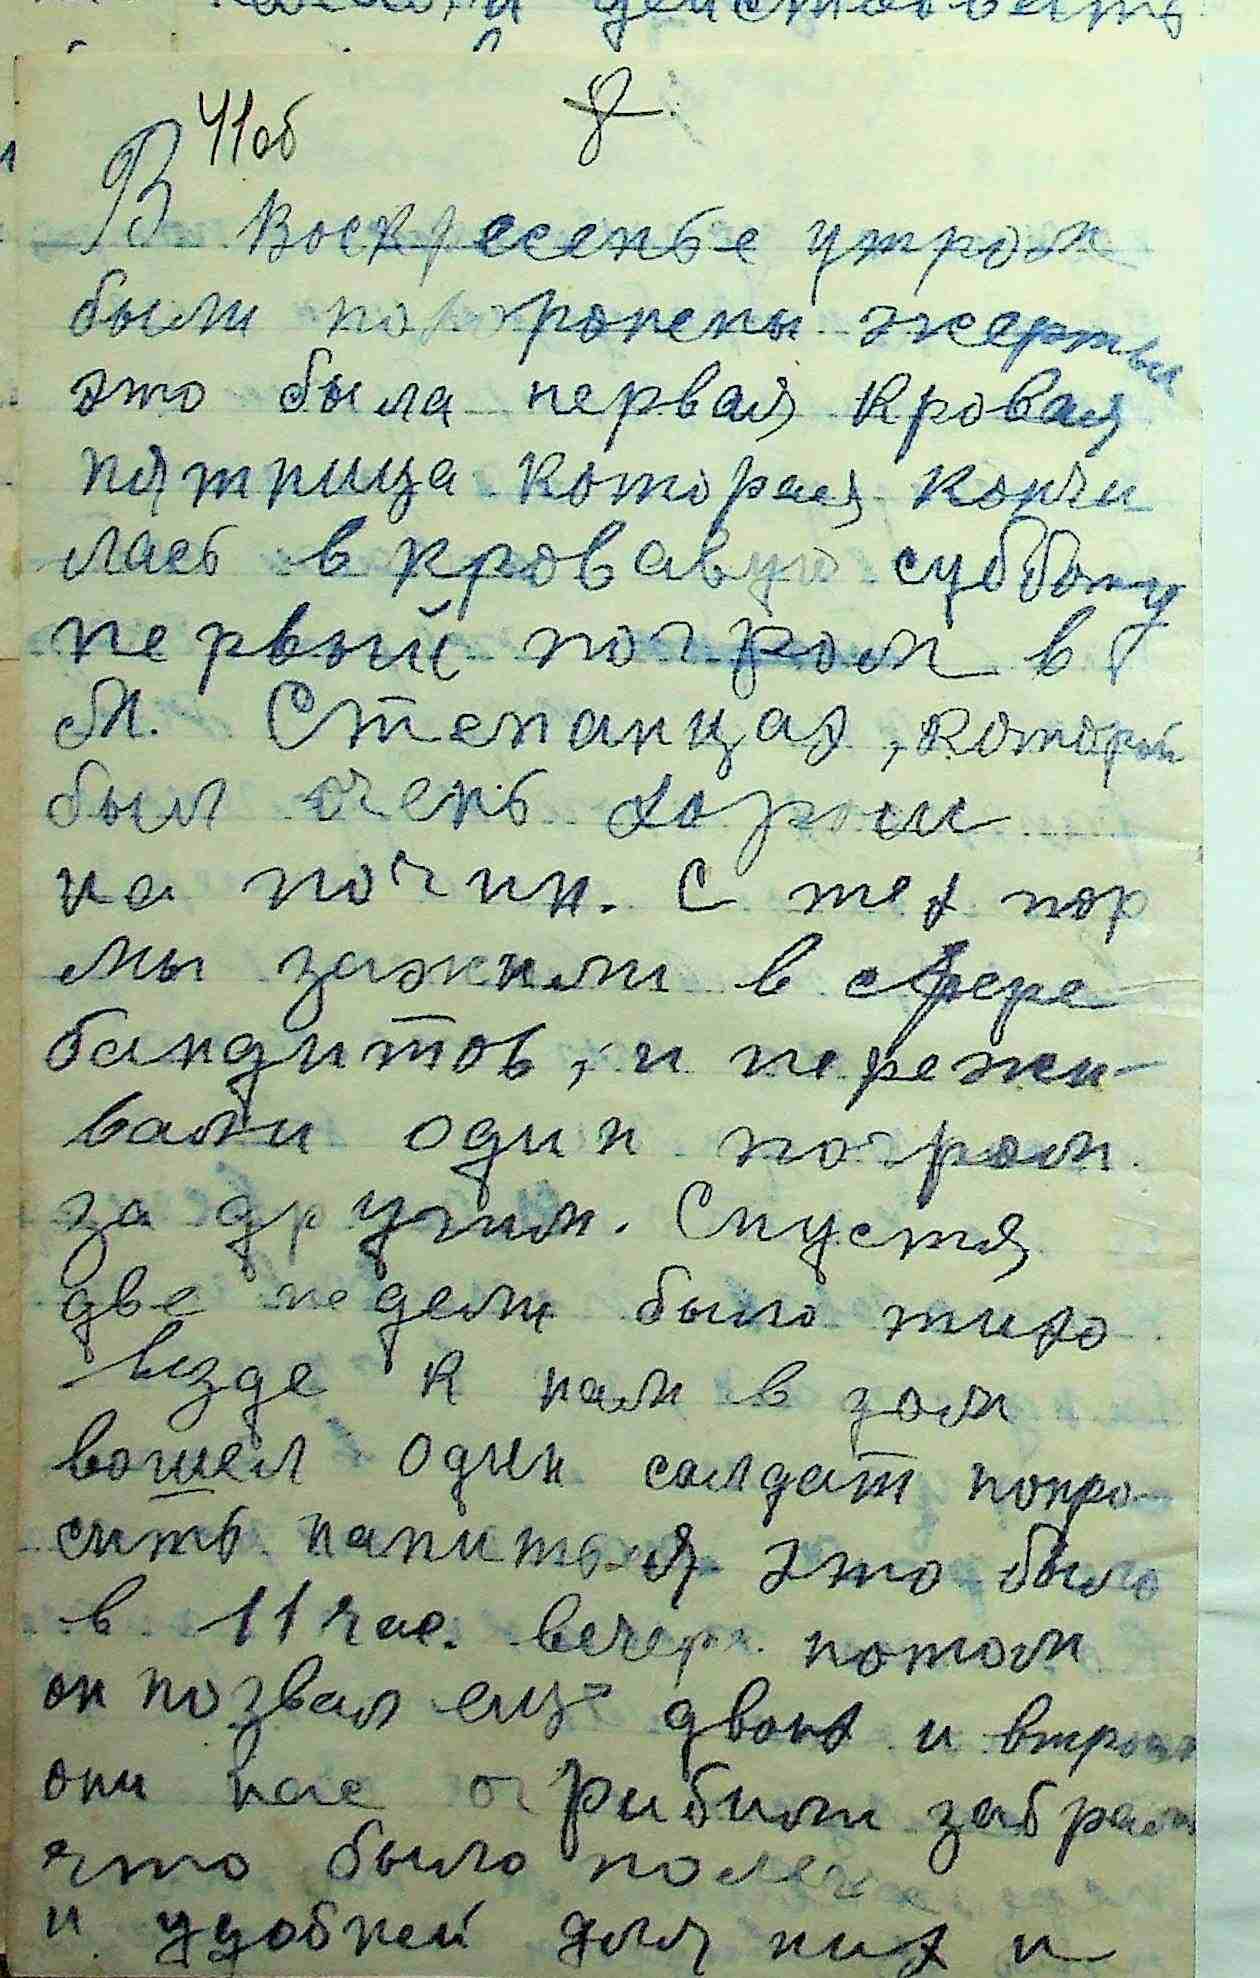 действовать
41об
8
В воскресенье утром
были похоронены жертвы
это была первая кровая
пятница которая кончи
лась в кровавую субботу
первый погром в
М. Степанцах, который
был очень хорош
на почин. С тех пор
мы зажили в сфере
бандитов, и пережи-
вали один погром
за другим. Спустя
две недели было тихо
везде к нам в дом
вошел один солдат попро-
сить напиться это было
в 11 час. вечера потом
он позвал еще двоих и втроем
они нас огрибили забрали
что было полег
и удобней для них и